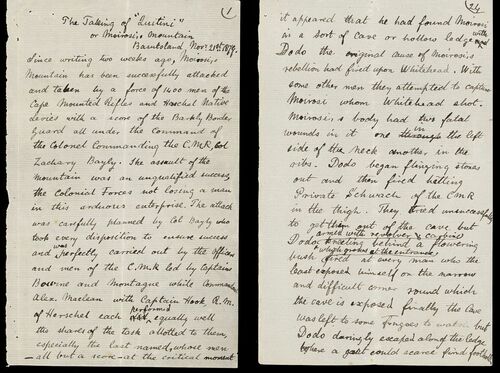 1
The Taking of "Lustini"
or Moirosi's Mountain
Basutoland, Nov. 21st 1879.
Since writing two weeks ago, Moirosi's
Mountain has been successfully attacked
and taken by a force of 1400 men of the
Cape Mounted Rifles and Herschel Native
levies with a score of the Barkly Border
Guard all under the Command of
the Colonel Commanding the C.M.R. Col
Zachary Bayly. The assault of the
Mountain was an unqualified success
the Colonial Forces not losing a man
in this arduous enterprise. The attack
was carefully planned by Col Bayly who
took every disposition to ensure success
and was perfectly carried out by the Officers
and men of the C.M.R. led by Captains
Bourne and Montague while Commandant
Alex. Maclean with Captain Hook, R.M.
of Herschel each performed equally well
the shares of the task allotted to them,
especially the last named, whose men
- all but a score - at the critical moment
24
it appeared that he had found Moirosi
in a sort of cave or hollow ledge with
Dodo the original cause of Moirosi's
rebellion had fired upon Whitehead. With
some other men they attempted to capture
Moirosi whom Whitehead shot.
Moirosi's body had two fatal
wounds in it one in the left
side of the Neck another in the
ribs. Dodo began flinging stones
out and then fired hitting
Private Schwach of the CMR
in the thigh. They tried unsuccessfully
to get them out of the cave but
Dodo armed with revolver & carbine
kneeling behind a flowering
bush which grows at the entrance,
fired at every man who the
least exposed himself on the narrow
and difficult corner round which
the cave is exposed finally the cave
was left to some Fingoes to watch but
Dodo daringly escaped along the ledge
where a goat could scarce find foothold